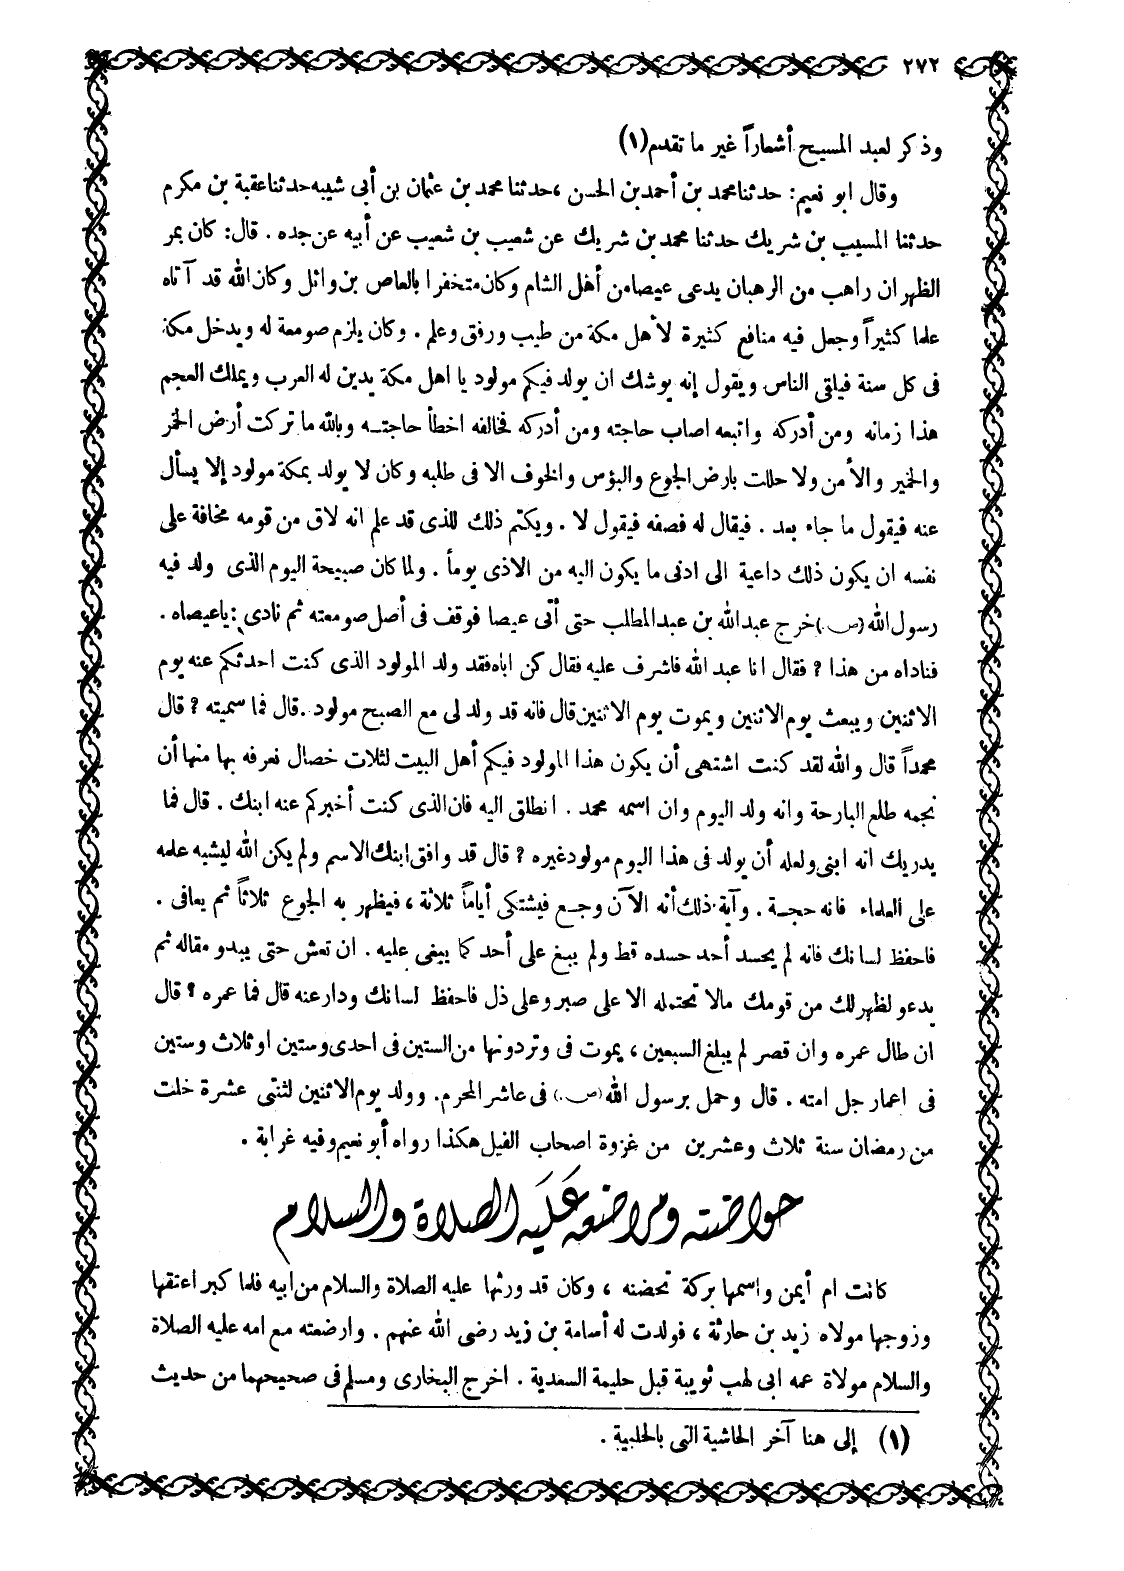 ٢٧٢
وذكر لعبد المسيح أشعاراً غير ما تقدم(١)
وقال ابو نعيم: حدثنا محمد بن أحمد بن الحسن ، حدثنا محمد بن عثمان بن أبى شيبه حدثنا عقبة بن مكرم
حدثنا المسيب بن شريك حدثنا محمد بن شريك عن شعيب بن شعيب عن أبيه عن جده . قال: كان بمر
الظهران راهب من الرهبان يدعى عيصا من أهل الشام وكان متخفرا بالعاص بن وائل وكان الله قد آتاه
علما كثيراً وجعل فيه منافع كثيرة لأهل مكة من طيب ورفق وعلم . وكان يلزم صومعة له ويدخل مكة
فى كل سنة فيلقى الناس ويقول إنه يوشك ان يولد فيكم مولود يا اهل مكة يدين له العرب ويملك العجم
هذا زمانه ومن أدركه واتبعه اصاب حاجته ومن أدركه فخالفه اخطأ حاجتـه وبالله ما تركت أرض الخمر
والخمير والأمن ولا حللت بارض الجوع والبؤس والخوف الا فى طلبه وكان لا يولد بمكة مولود إلا يسأل
عنه فيقول ما جاء بعد . فيقال له فصفه فيقول لا . ويكتم ذلك للذى قد علم انه لاق من قومه مخافة على
نفسه ان يكون ذلك داعية الى ادنى ما يكون اليه من الاذى يوماً . ولما كان صبيحة اليوم الذى ولد فيه
رسول الله (ص.) خرج عبدالله بن عبدالمطلب حتى أتى عيصا فوقف فى أصل صومعته ثم نادى : ياعيصاه .
فناداه من هذا ? فقال انا عبد الله فاشرف عليه فقال كن اباه فقد ولد المولود الذى كنت احدثكم عنه يوم
الاثنين ويبعث يوم الاثنين ويموت يوم الاثنين قال فانه قد ولد لى مع الصبح مولود . قال فما سميته ? قال
محمداً قال والله لقد كنت اشتهى أن يكون هذا المولود فيكم أهل البيت لثلاث خصال نعرفه بها منها أن
نجمه طلع البارحة وانه ولد اليوم وان اسمه محمد . انطلق اليه فان الذى كنت أخبركم عنه ابنك . قال فما
يدريك انه ابنى ولعله أن يولد فى هذا اليوم مولود غيره ? قال قد وافق ابنك الاسم ولم يكن الله ليشبه علمه
على العلماء فانه حجـة . وآية ذلك أنه الآن وجـع فيشتكى أياماً ثلاثة ، فيظهر به الجوع ثلاثاً ثم يعافى .
فاحفظ لسانك فانه لم يحسد أحد حسده قط ولم يبغ على أحد كما يبغى عليه . ان تعش حتى يبدو مقاله ثم
يدعو لظهر لك من قومك مالا تحتمله الا على صبر وعلى ذل فاحفظ لسانك ودار عنه قال فما عمره ? قال
ان طال عمره وان قصر لم يبلغ السبعين ، يموت فى وتر دونها من الستين فى احدى وستين او ثلاث وستين
فى اعمار جل امته . قال وحمل برسول الله (ص.) فى عاشر المحرم. وولد يوم الاثنين لثنتى عشرة خلت
من رمضان سنة ثلاث وعشرين من غزوة اصحاب الفيل هكذا رواه أبو نعيم وفيه غرابة .
حواضنه ومراضعه عليه الصلاة والسلام
كانت ام أيمن واسمها بركة تحضنه ، وكان قد ورثها عليه الصلاة والسلام من ابيه فلما كبر اعتقها
وزوجها مولاه زيد بن حارثة ، فولدت له أسامة بن زيد رضى الله عنهم . وارضعته مع امه عليه الصلاة
والسلام مولاة عمه ابى لهب ثويبة قبل حليمة السعدية . اخرج البخارى ومسلم فى صحيحهما من حديث
(١) إلى هنا آخر الحاشية التى بالحلبية .